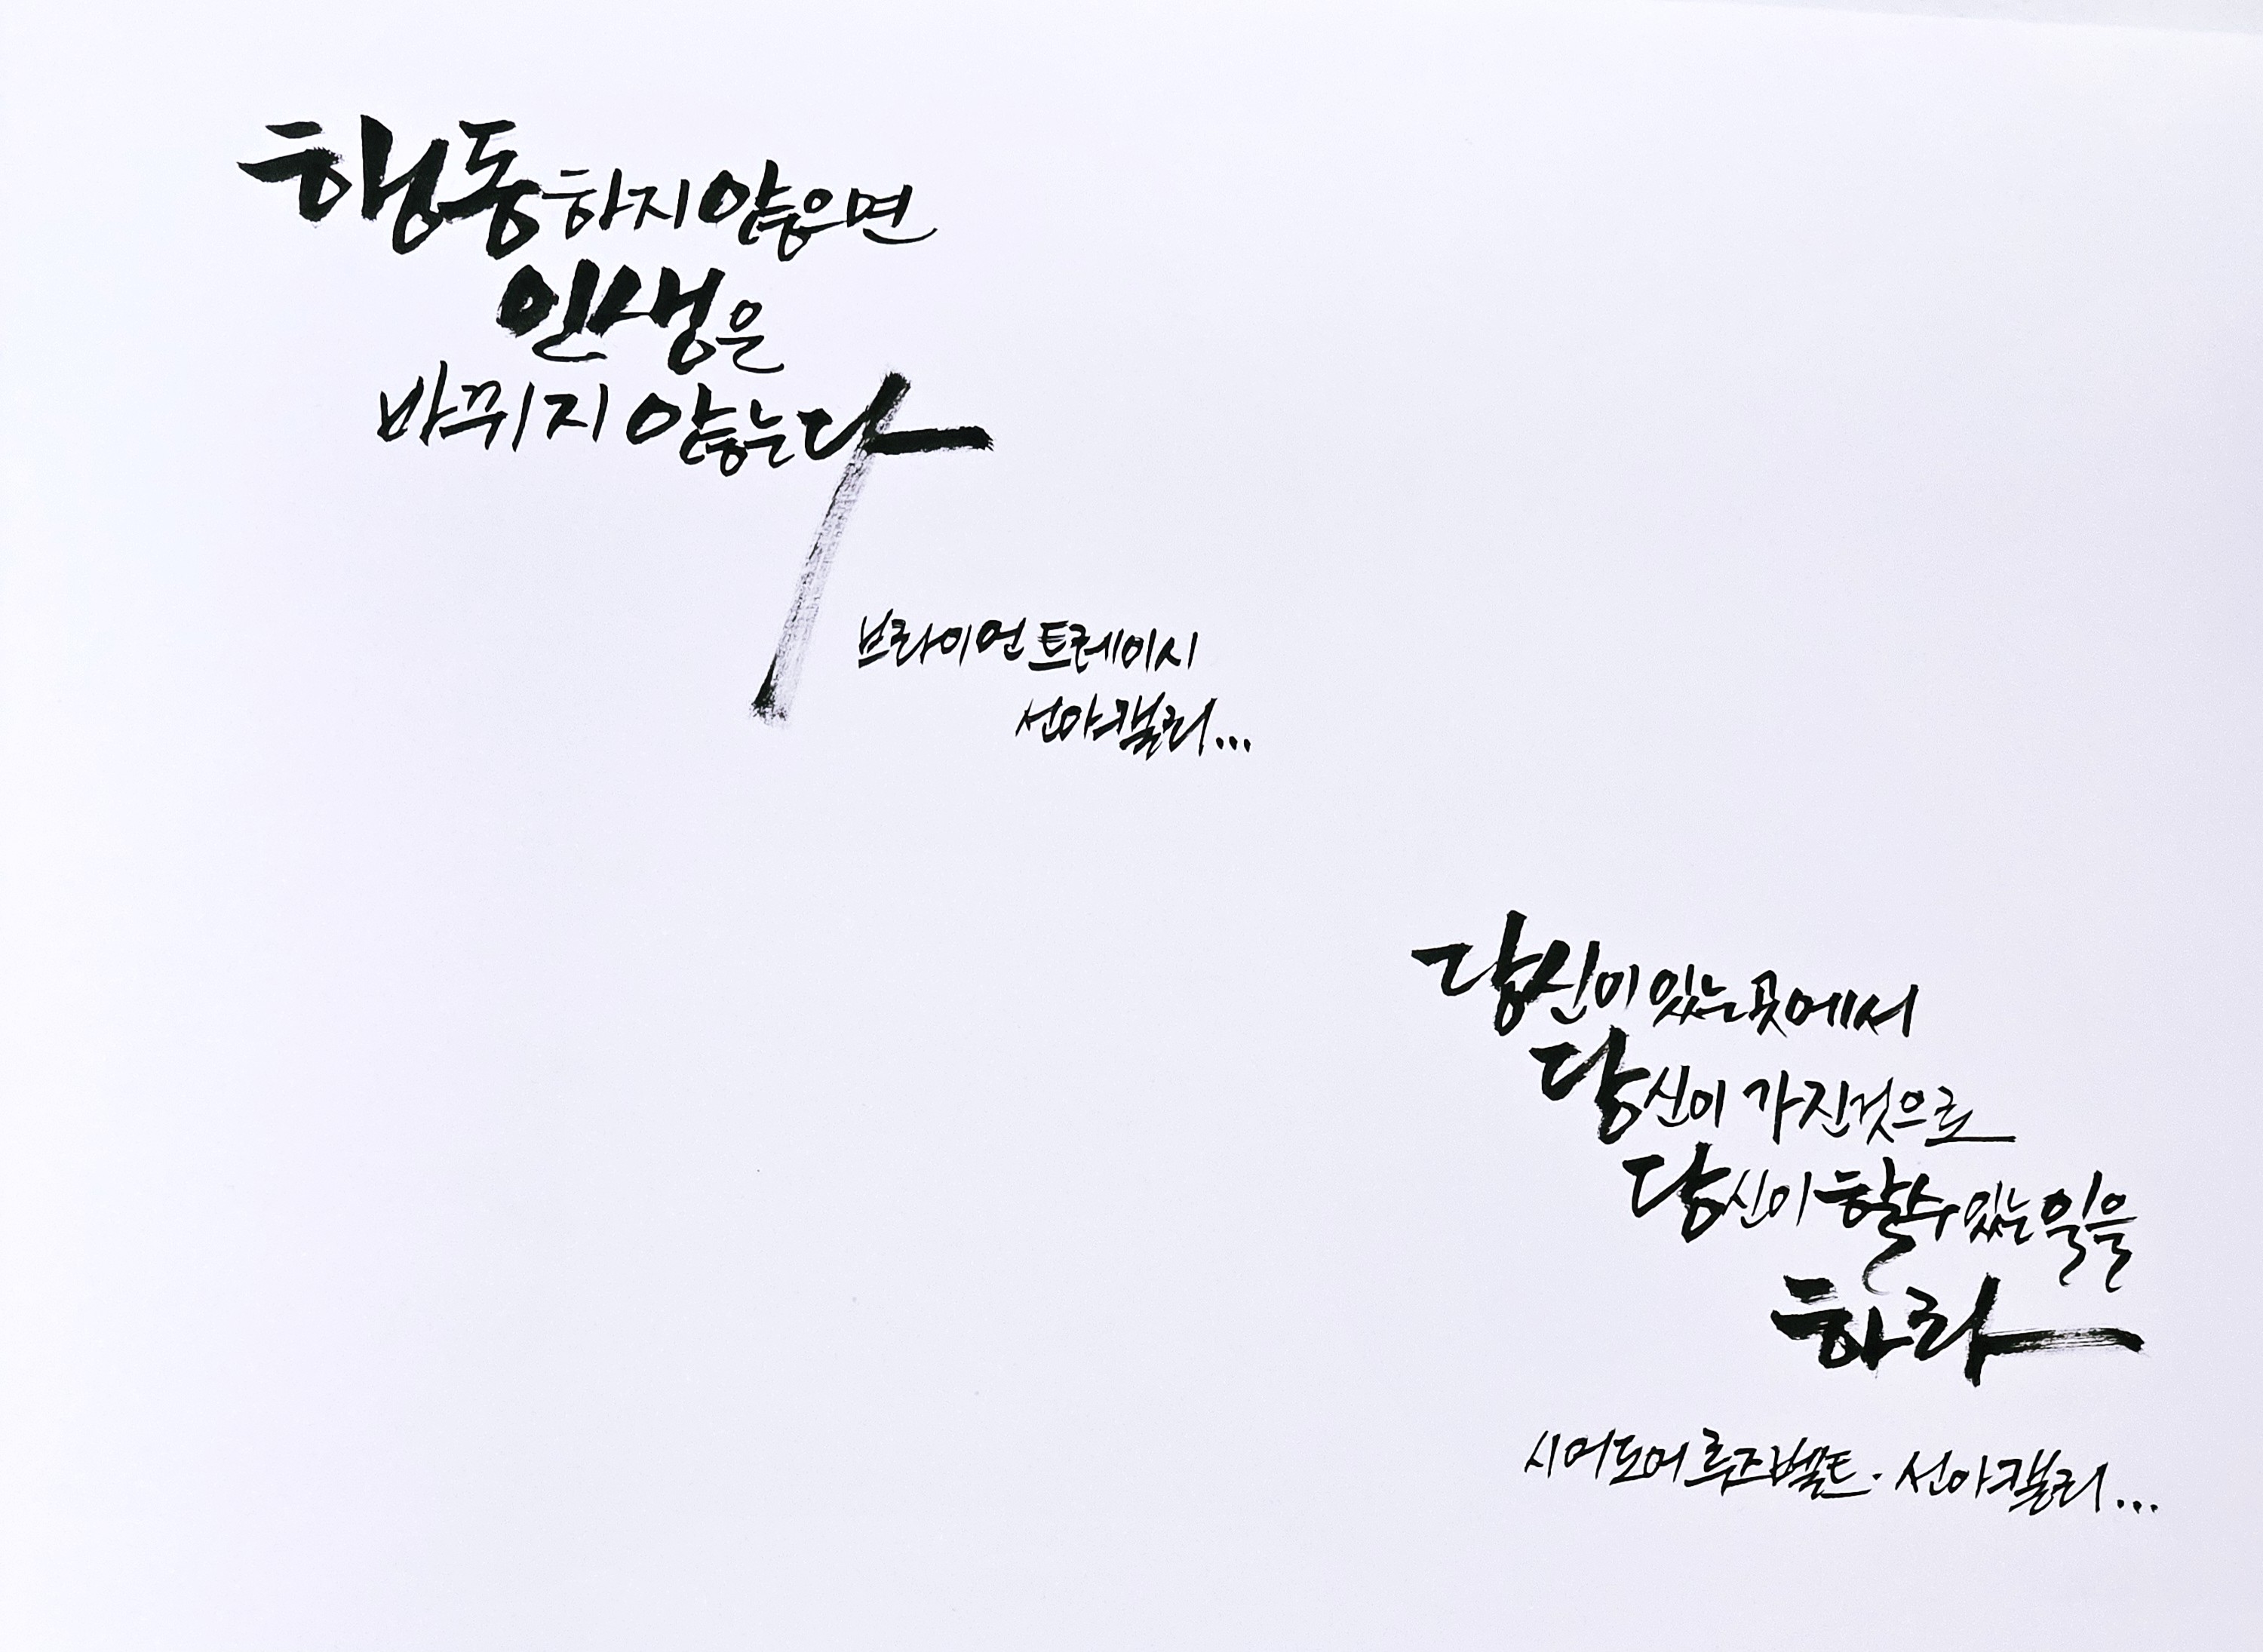 행동하지 않으면
인생은
바뀌지 않는다
브라이언 트레이시
선아캘리...
당신이 있는 곳에서
당신이 가진것으로
당신이 할수 있는 일을
하라
시어도어 루즈벨트 · 선아캘리...